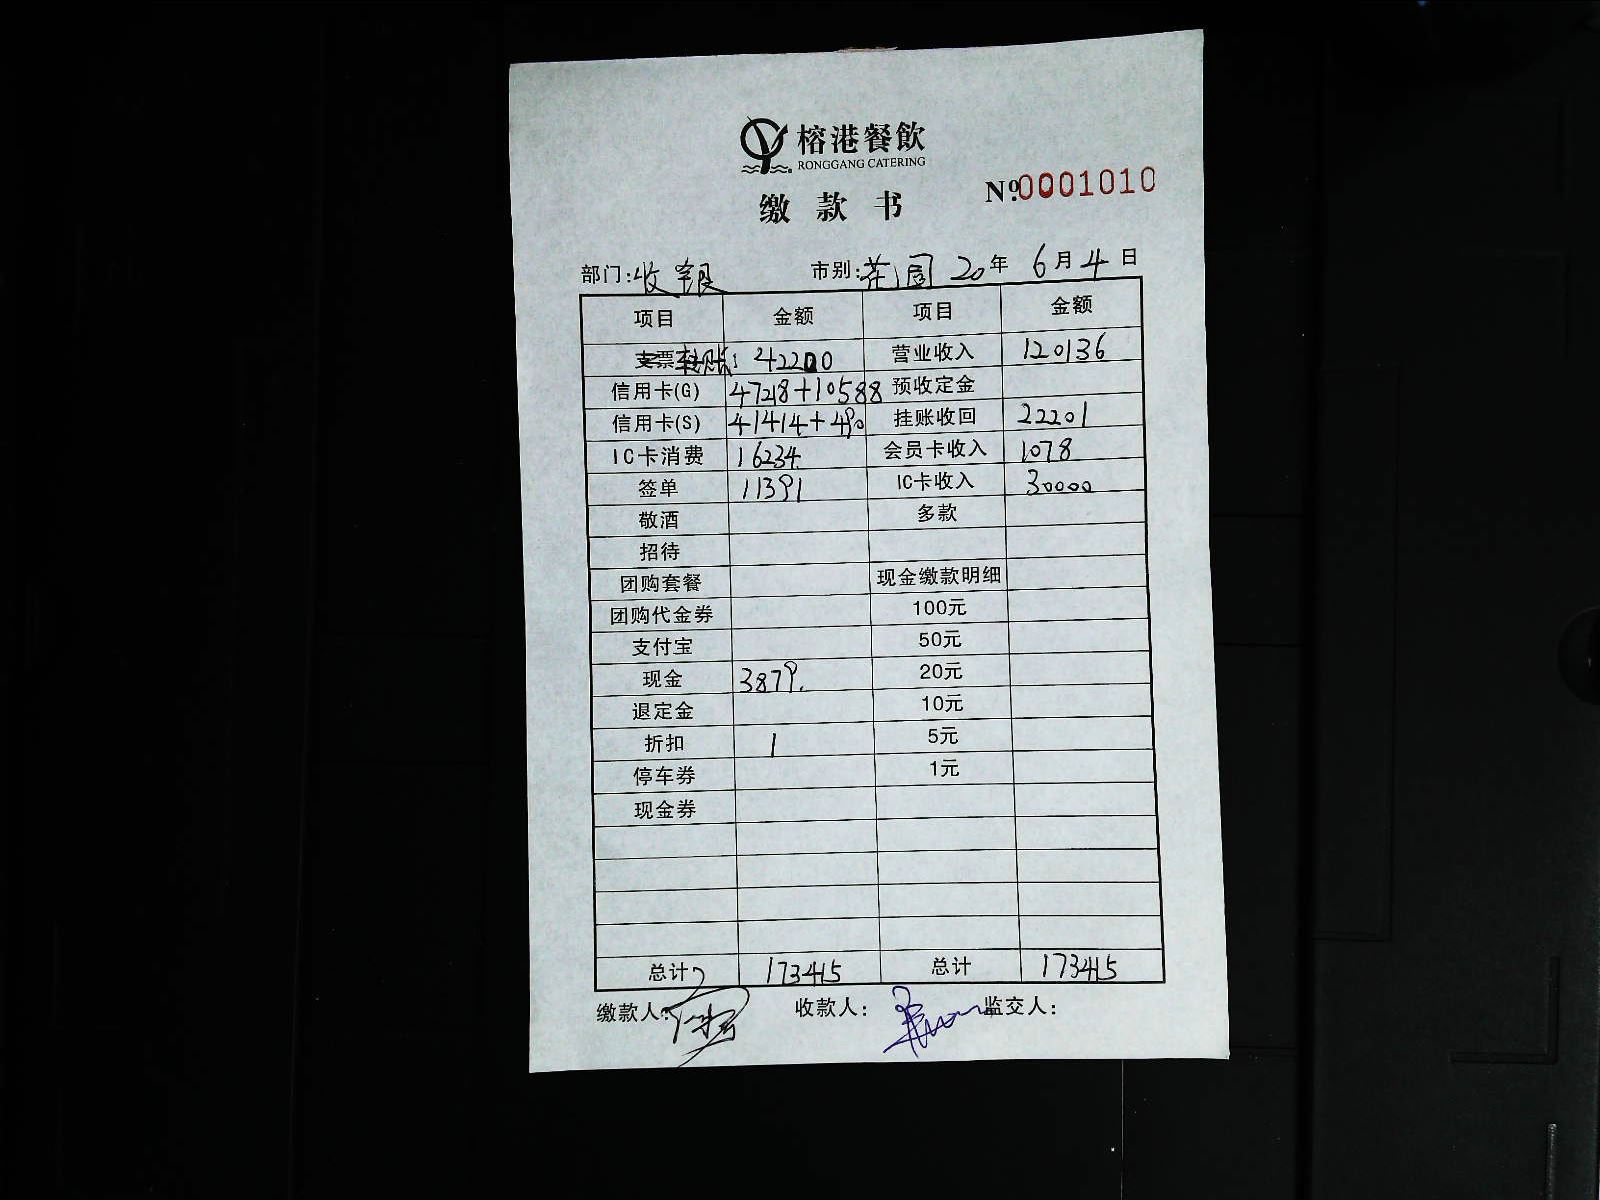 榕港餐飲
RONGGANG CATERING
缴款书 No.0001010
部门:收银 市别:花园 20年 6月 4日
项目 金额 项目 金额
转账: 42200 营业收入 120136
信用卡(G) 47218+10588 预收定金
信用卡(S) 41414+490 挂账收回 22201
IC卡消费 16234 会员卡收入 1078
签单 11391 IC卡收入 30000
敬酒 多款
招待
团购套餐 现金缴款明细
团购代金券 100元
支付宝 50元
现金 3879. 20元
退定金 10元
折扣 1 5元
停车券 1元
现金券
总计 173415 总计 173415
缴款人: 收款人: 监交人: